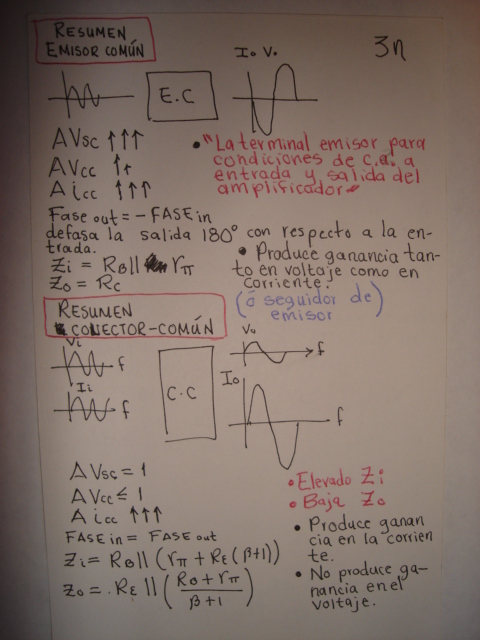 RESUMEN
EMISOR COMÚN
3n
Io Vo
E.C
AVsc ↑↑↑
AVcc ↑↑
Aicc ↑↑↑
• "La terminal emisor para
condiciones de c.a. a
entrada y salida del
amplificador"
Fase out = - FASE in
defasa la salida 180° con respecto a la en-
trada.
• Produce ganancia tan-
to en voltaje como en
corriente.
Zi = RB || rπ
Zo = Rc
RESUMEN
COLECTOR-COMÚN
(ó seguidor de
emisor)
Vi
f
Ii
f
C.C
Vo
f
Io
f
AVsc = 1
AVcc ≤ 1
Aicc ↑↑↑
FASE in = FASE out
Zi = RB || (rπ + RE (β+1))
Zo = RE || (RB + rπ / β+1)
• Elevado Zi
• Baja Zo
• Produce ganan
cia en la corrien
te.
• No produce ga-
nancia en el
voltaje.